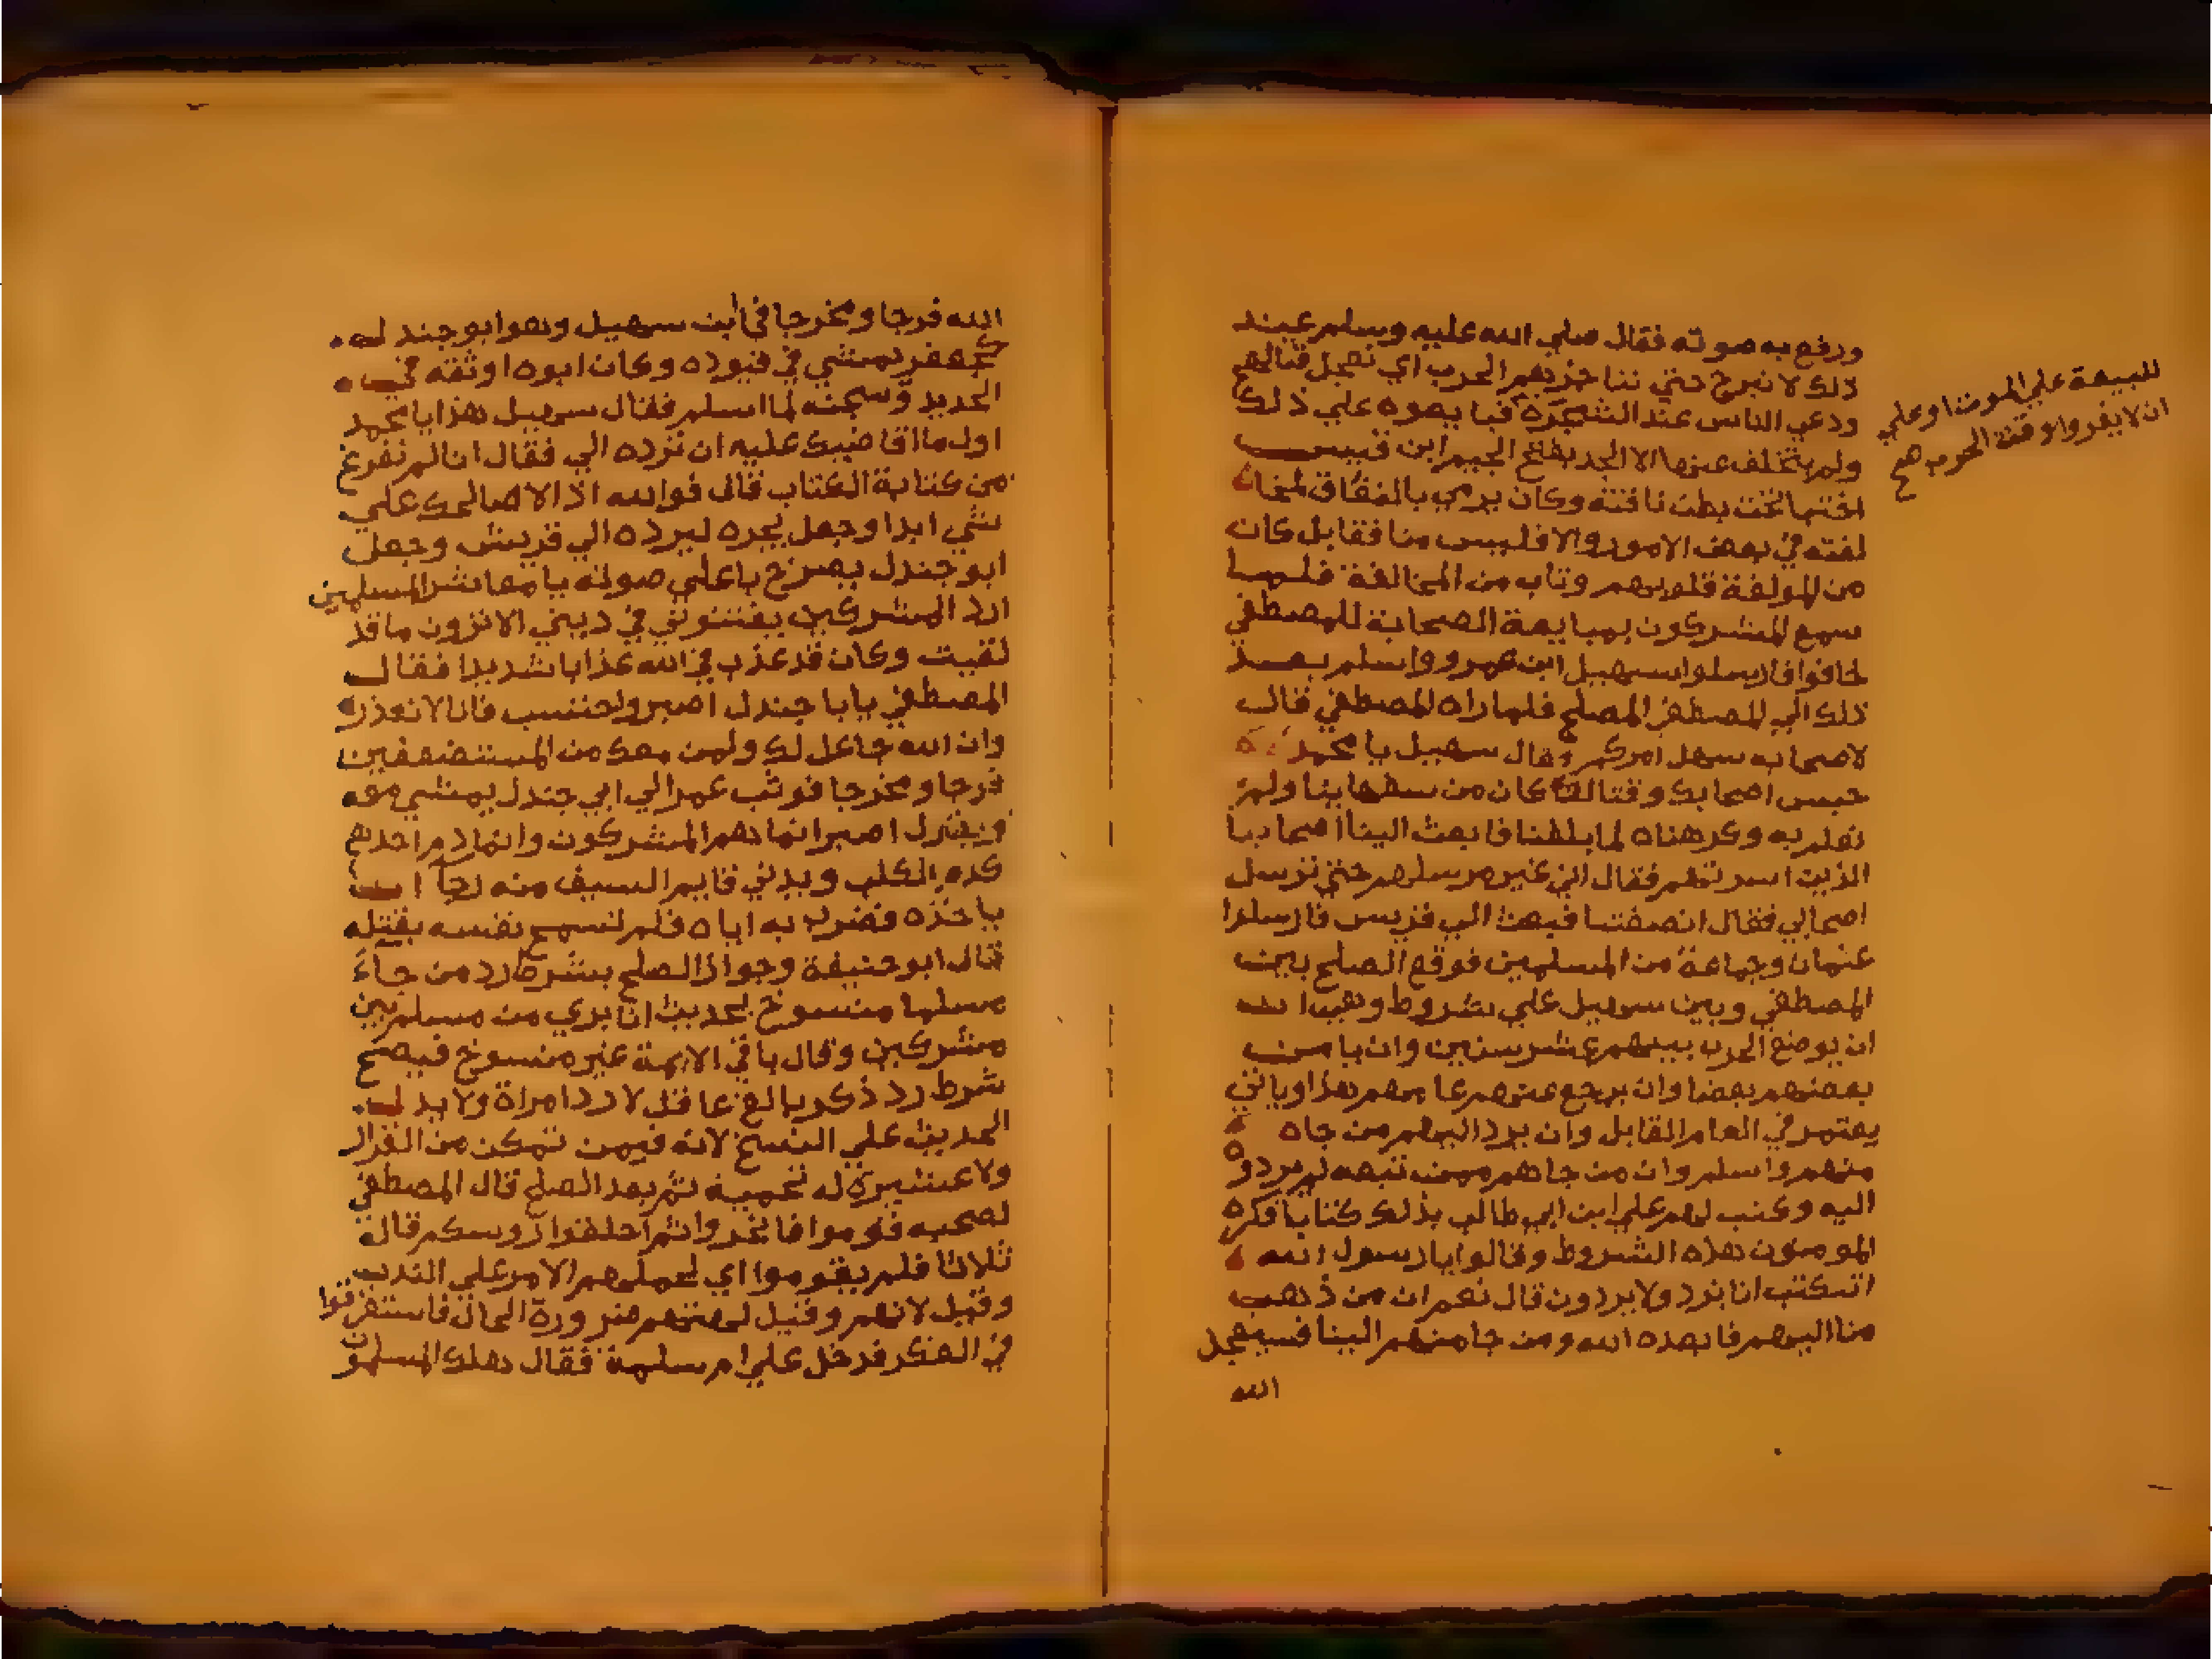 ورفع به صوته فقال صلي الله عليه وسلم عند
ذلك لا نبرح حتي نناجزهم الحرب اي نعجل قتالهم
ودعي الناس عند الشجرة فبايعوه علي ذلك
للبيعة علي الموت او علي
ان لا يفروا وقت الحرب صح
ولم يتخلف عنها الا الجد بفتح الجيم ابن قيس
اختبا تحت بطن ناقته وكان يرمي بالنفاق
في بعض الامور والا فليس منافقا بل كان
من المولفة قلوبهم وتاب من المخالفة فلما
سمع المشركون بمبايعة الصحابة للمصطفي
خافوا فارسلوا سهيل ابن عمرو واسلم بعد
ذلك الي المصطفي المصلح فلما راه المصطفي قال
لاصحابه سهل امركم وقال سهيل يا محمد
حبس اصحابك وقتالك كان من سفهاينا ولم
نعلم به وكرهناه لما بلغنا فابعث الينا اصحابنا
الذين اسرتهم فقال اني غير مرسلهم حتي ترسل
اصحابي فقال انصفتنا فبعث الي قريش فارسلوا
عثمان وجماعة من المسلمين فوقع الصلح بين
المصطفي وبين سهيل علي شروط وهي
ان يوضع الحرب بينهم عشر سنين وان يامن
بعضهم بعضا وان يرجع عنهم عامهم هذا وياتي
يعتمر في العام القابل وان يرد اليهم من جاه
منهم واسلم وان من جاهم ممن تبعه لم يردوه
اليه وكتب لهم علي ابن ابي طالب بذلك كتابا فكره
المومنون هذه الشروط وقالوا يا رسول الله
اتكتب انا نرد ولا يردون قال نعم ان من ذهب
منا اليهم فابعده الله ومن جا منهم الينا فسيجعل
الله
الله فرجا ومخرجا في ابن سهيل وهو ابو جندل
كجعفر يمشي في قيوده وكان ابوه اوثقه في
الحديد وسجنه لما اسلم فقال سهيل هذا يا محمد
اول ما اقاضيك عليه ان ترده الي فقال انا لم نفرغ
من كتابة الكتاب قال فوالله اذا لا اصالحك علي
شي ابدا وجعل يجره ليرده الي قريش وجعل
ابو جندل يصرخ باعلي صوته يا معاشر المسلمين
ارد المشركين يفتنوني في ديني الا ترون ما قد
لقيت وكان قد عذب في الله عذابا شديدا فقال
المصطفي يابا جندل اصبر واحتسب فانا لا نغدر
وان الله جاعل لك ولمن معك من المستضعفين
فرجا ومخرجا فوثب عمر الي ابي جندل يمشي معه
ويقول اصبر انما هم المشركون وانما دم احدهم
كدم الكلب ويدني قايم السيف منه رجاء ان
ياخذه فضرب به اباه فلم تسمح نفسه بقتله
قال ابو حنيفة وجواز الصلح بشرط رد من جاء
مسلما منسوخ لحديث انا بري من مسلم بين
مشركين وقال باقي الايمة غير منسوخ فيصح
شرط رد ذكر بالغ عاقل لا رد امراة ولا يدل
الحديث علي النسخ لانه فيمن تمكن من الفرار
ولا عشيرة له تحميه ثم بعد الصلح قال المصطفي
لصحبه قوموا فانحروا ثم احلقوا روسكم قاله
ثلاثا فلم يقوموا اي لحملهم الامر علي الندب
وقيل لانهم وقيل ضرورة الحال فاستغرقوا
في الفكر فدخل علي ام سلمة فقال هلك المسلمون